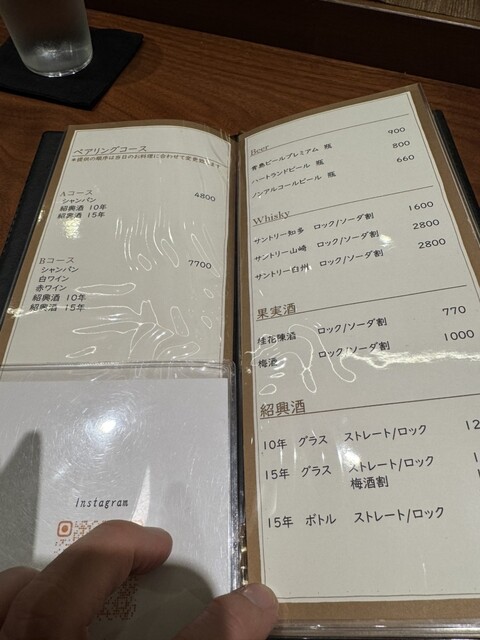 ペアリングコース
*提供の順序は当日のお料理に合わせて変更致します
Aコース 4800
シャンパン
紹興酒 10年
紹興酒 15年
Bコース 7700
シャンパン
白ワイン
赤ワイン
紹興酒 10年
紹興酒 15年
Instagram
Beer
青島ビールプレミアム 瓶 900
ハートランドビール 瓶 800
ノンアルコールビール 瓶 660
Whisky
サントリー知多 ロック/ソーダ割 1600
サントリー山崎 ロック/ソーダ割 2800
サントリー白州 ロック/ソーダ割 2800
果実酒
桂花陳酒 ロック/ソーダ割 770
梅酒 ロック/ソーダ割 1000
紹興酒
10年 グラス ストレート/ロック
15年 グラス ストレート/ロック
梅酒割
15年 ボトル ストレート/ロック